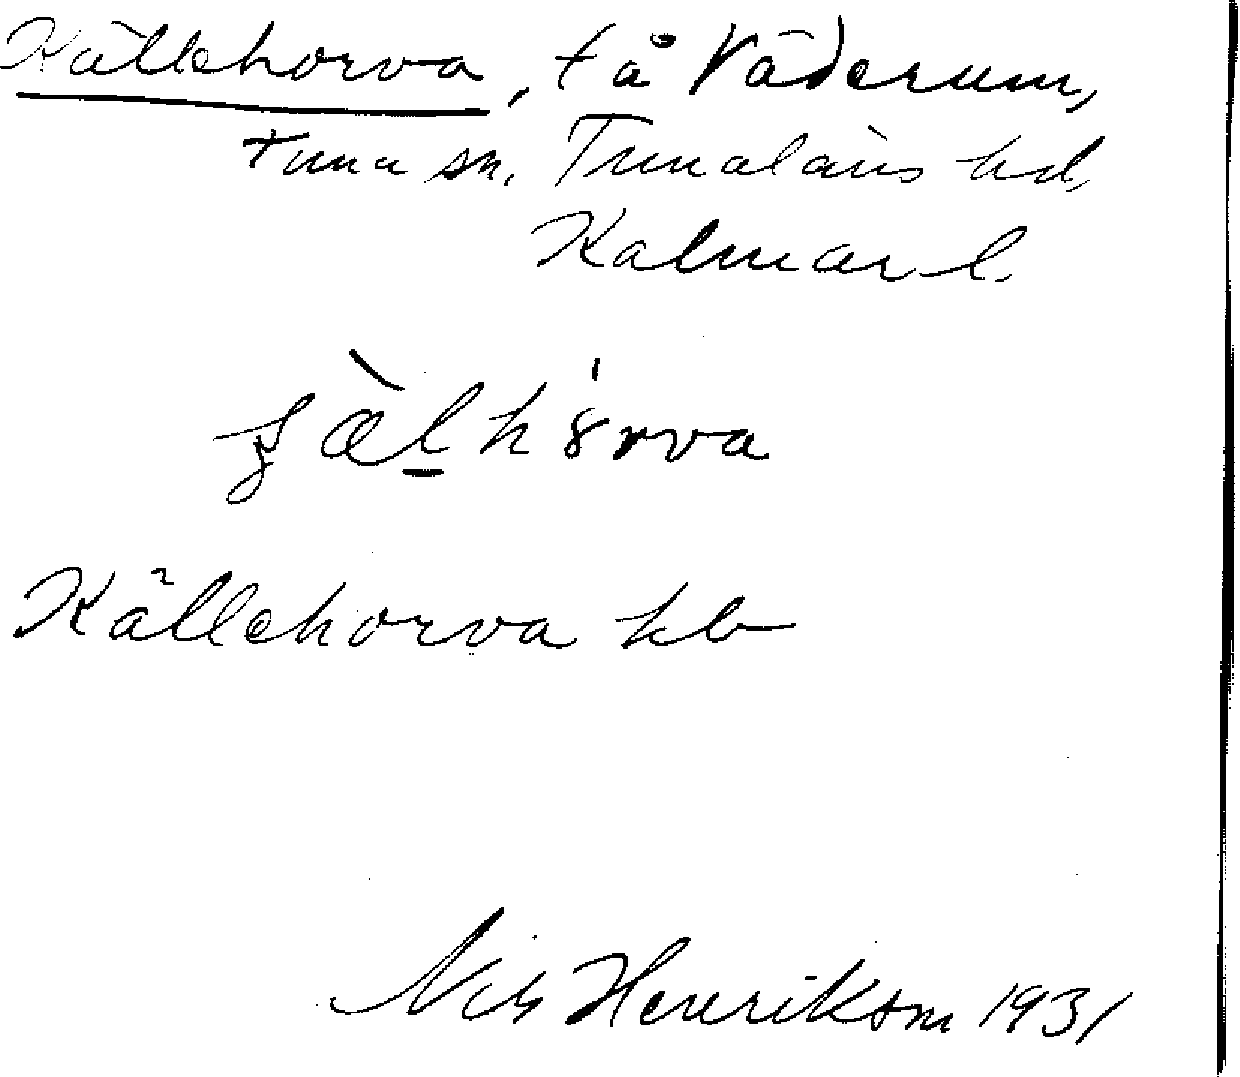 Källehorva, t å Väderum,
Tuna sn. Tunaläns hd,
Kalmar l.
Källehorva kb
Nils Henrikson 1931